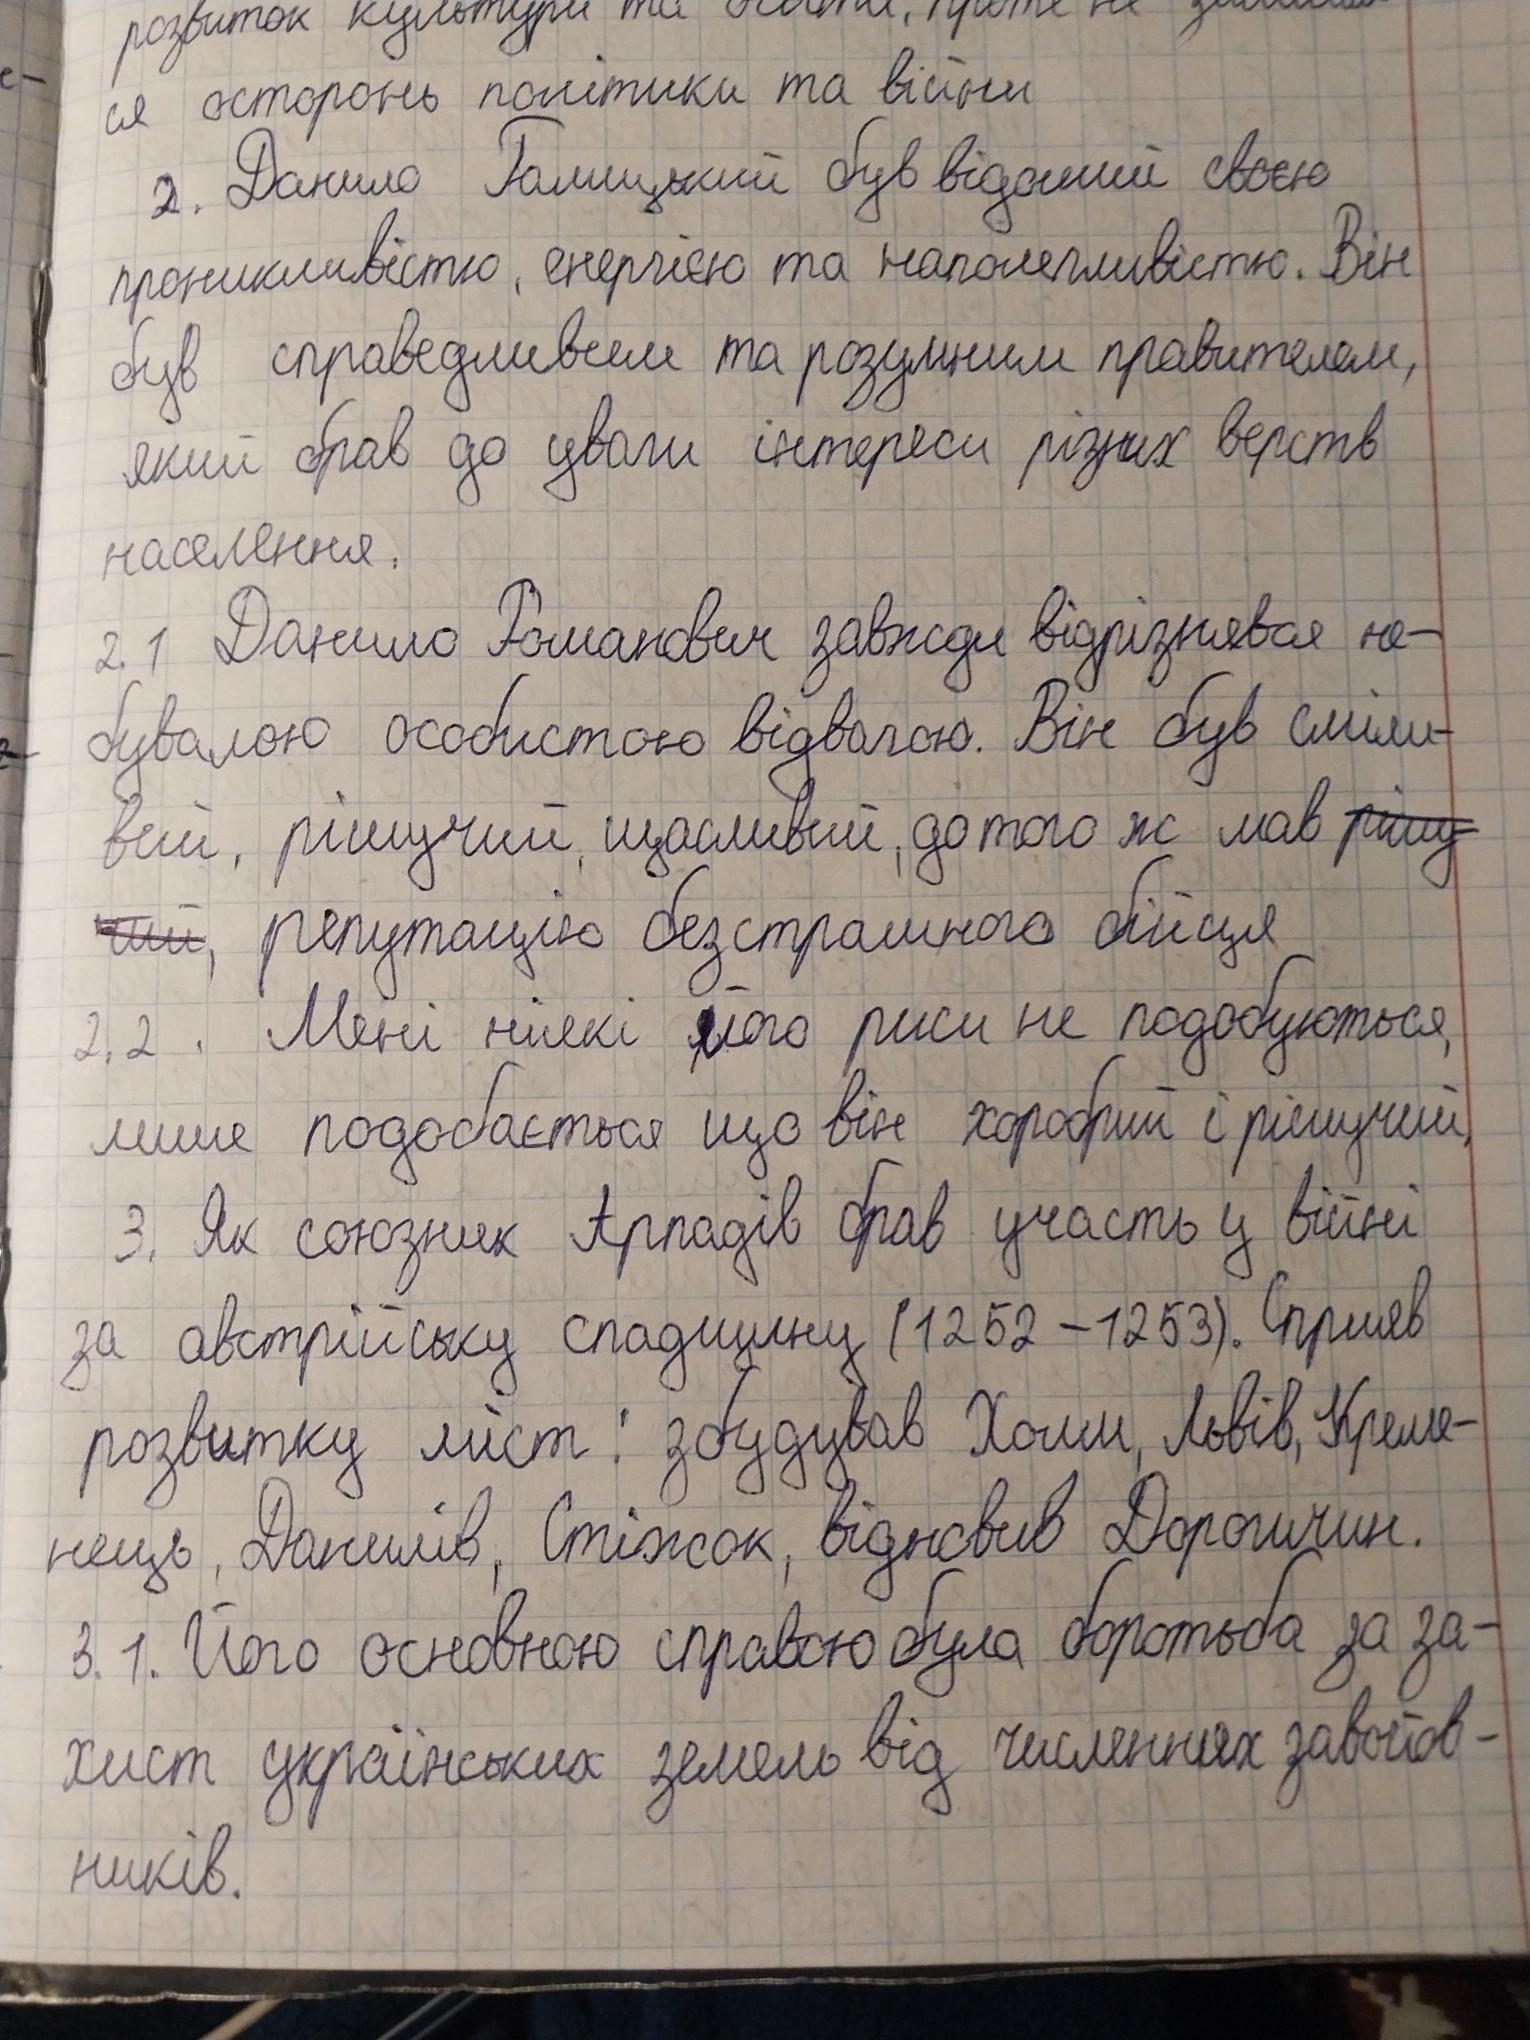 розвиток культури та освіти, проте не
ся осторонь політики та війни
2. Данило Галицький був відомий своєю
проникливістю, енергією та наполегливістю. Він
був справедливим та розумним правителем,
який брав до уваги інтереси різних верств
населення.
2.1 Данило Романович завжди відрізнявся не-
бувалою особистою відвагою. Він був сміли-
вий, рішучий, щасливий, до того ж мав рішу-
чий, репутацію безстрашного бійця
2.2. Мені ніякі його риси не подобуються,
лише подобається що він хоробрий і рішучий,
3. Як союзник Арпадів брав участь у війні
за австрійську спадщину (1252-1253). Сприяв
розвитку міст: збудував Холм, Львів, Креме-
нець, Данилів, Стіжок, відновив Дорогичин.
3.1. Його основною справою була боротьба за за-
хист українських земель від численних завойов-
ників.